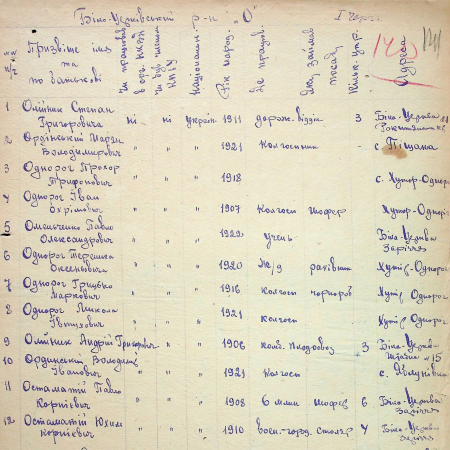 Біло-Церківський р-н "О" І черга
№№ п/ч Призвіще імя та по батькові Чи працював в орг. НКВД чи був членом КПУ Національн. Рік народ. Де працюв. Яку займав посаду Кільк. укр. Адреса
1 Олійник Степан Григорович ні ні україн. 1911 дорож. відділ 3 Біло-Церква
2 Ордінський Мар'ян Володимирович " " " 1921 Колгоспник - с. Піщана
3 Однорог Прохор Трифонович " " " 1918 с. Хутор-Однорог
4 Однорог Іван Охрімович " " " 1907 Колгосп шофер Хутор-Однорог
5 Омельченко Павло Олександрович " " " 1922 учень Біло-Церква Заріччя
6 Однорог Терешко Оксенович " " " 1920 Ж/д робітник Хутір-Однорог
7 Однорог Грицько Маркович " " " 1916 Колгосп чорнороб Хутір Однорог
8 Однорог Микола Івтихович " " " 1921 Колгосп Хутір Однорог
9 Олійник Андрій Григорович " " 1906 3 Біло-Церква №15
10 Ординський Володим. Іванович " " " 1921 Колгосп с. Яблунівка
11 Остаматій Павло Корнієвич " " " 1908 6 млин шофер 6 Біло-Церква Заріччя
12 Остаматій Юхим Корнієвич " " " 1910 воєн.-город. столяр 4 Біло-Церква Заріччя